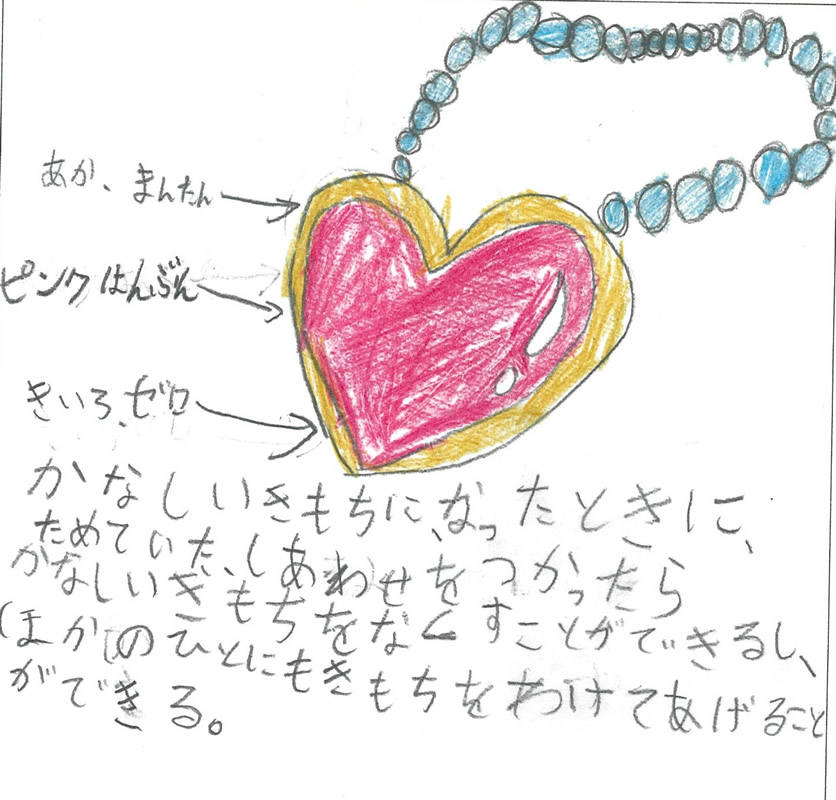 あか、まんたん
ピンクはんぶん
きいろ、ゼロ
かなしいきもちに、なったときに、
ためていた、しあわせをつかったら
かなしいきもちをなくすことができるし、
ほかのひとにもきもちをわけてあげること
ができる。